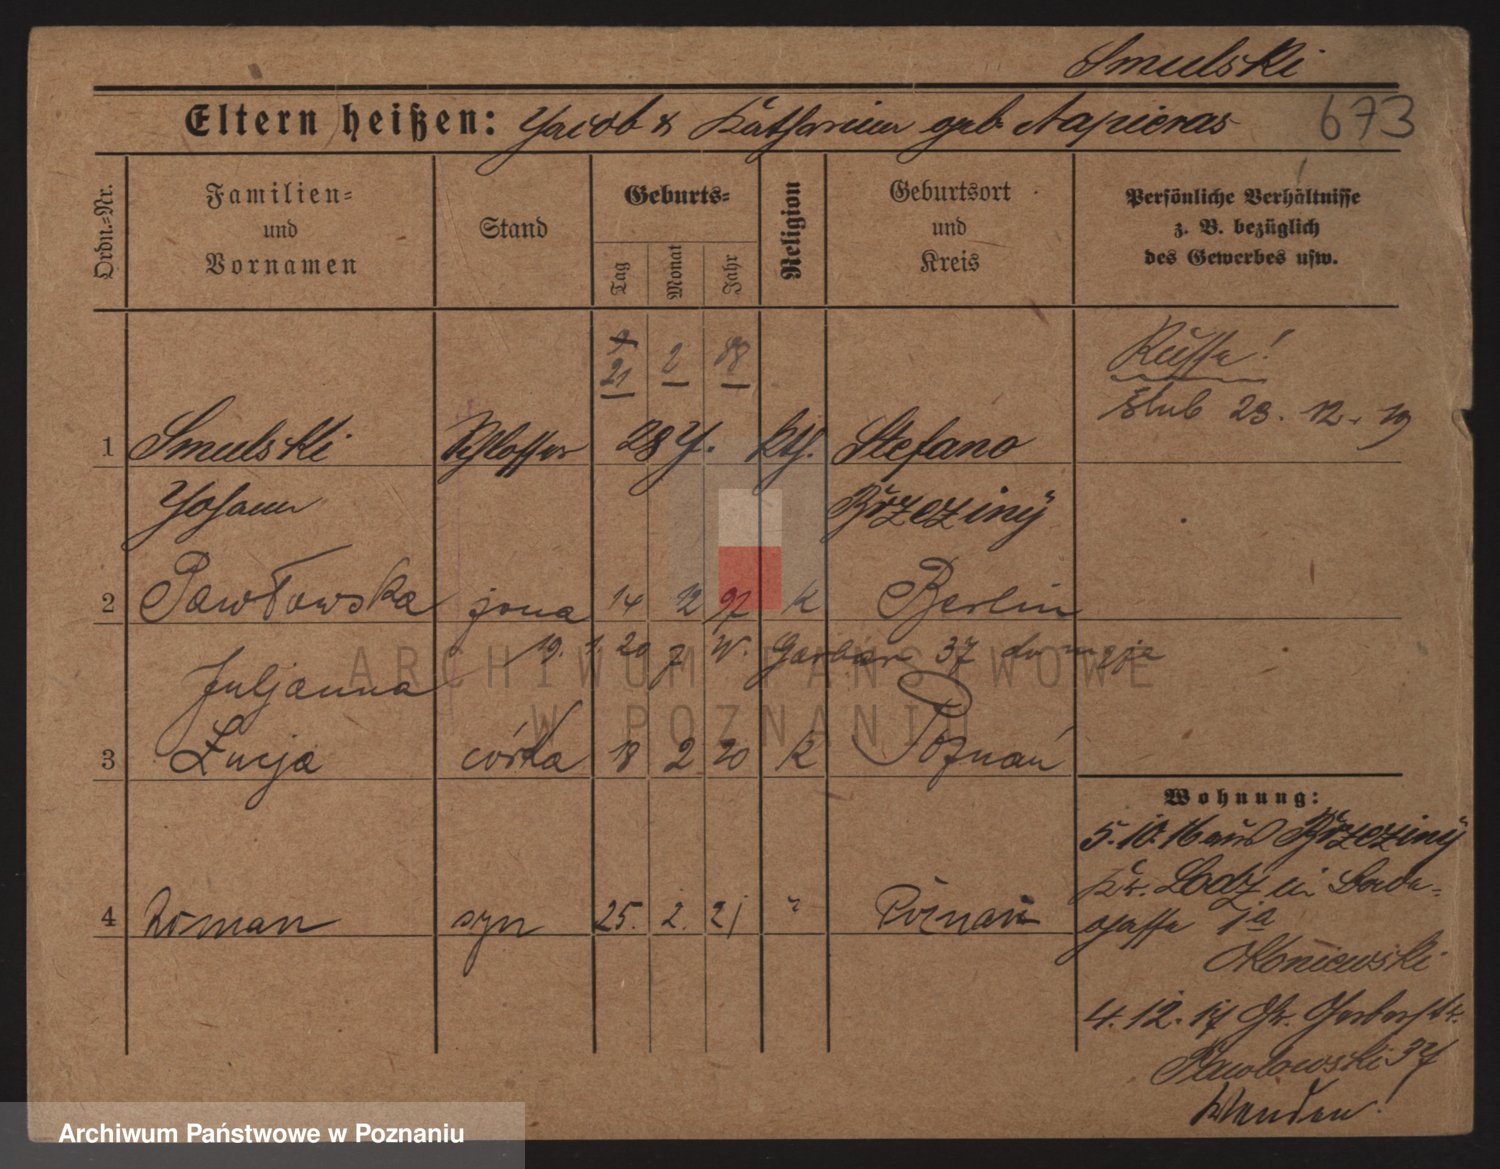 Smulski
Eltern heißen: Jacob & Katharina geb. Napieras 673
Ordn.-Nr.
Familien-
und
Vornamen
Stand
Geburts-
Tag
Monat
Jahr
Religion
Geburtsort
und
Kreis
Persönliche Verhältnisse
z. B. bezüglich
des Gewerbes usw.
9
21 2 88
Russe!
ślub 23. 12. 19
1 Smulski Schlosser 28 J. kth. Stefano
Johann Brzeziny
2 Pawłowska żona 14 12 97 k Berlin
19. 1. 20 z W. Garbar 37
Juljanna
3 Łucja córka 18 2 20 k Poznań
4 Roman syn 25. 2. 21 " Poznań
Wohnung:
5.10.16 aus Brzeziny
Kr. Lodz in
gasse ja
Okoniewski
4.12.17 Gr. Gerberstr.
Pawlowski 37
Wenden!
ARCHIWUM PAŃSTWOWE
W POZNANIU
Archiwum Państwowe w Poznaniu